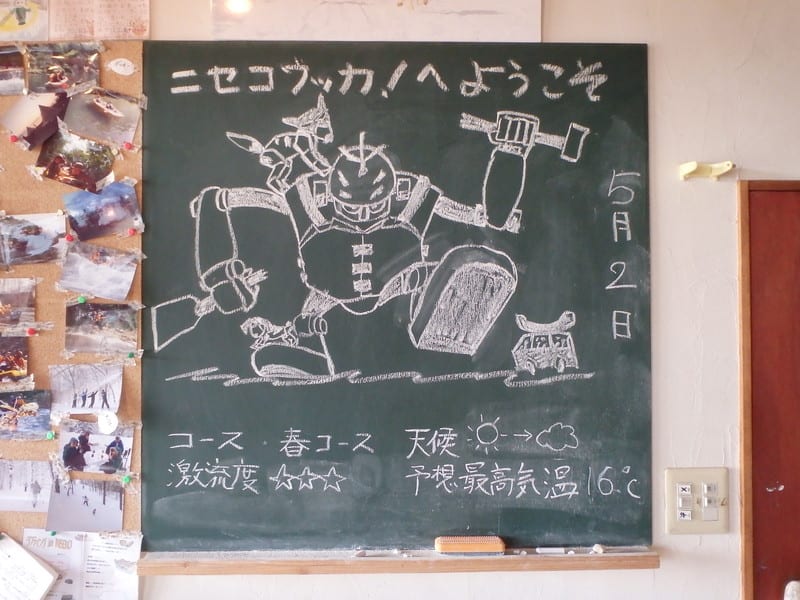 ニセコヴッカ!へようこそ
5月2日
コース・春コース
天候 → 
激流度 ☆☆☆
予想最高気温16℃